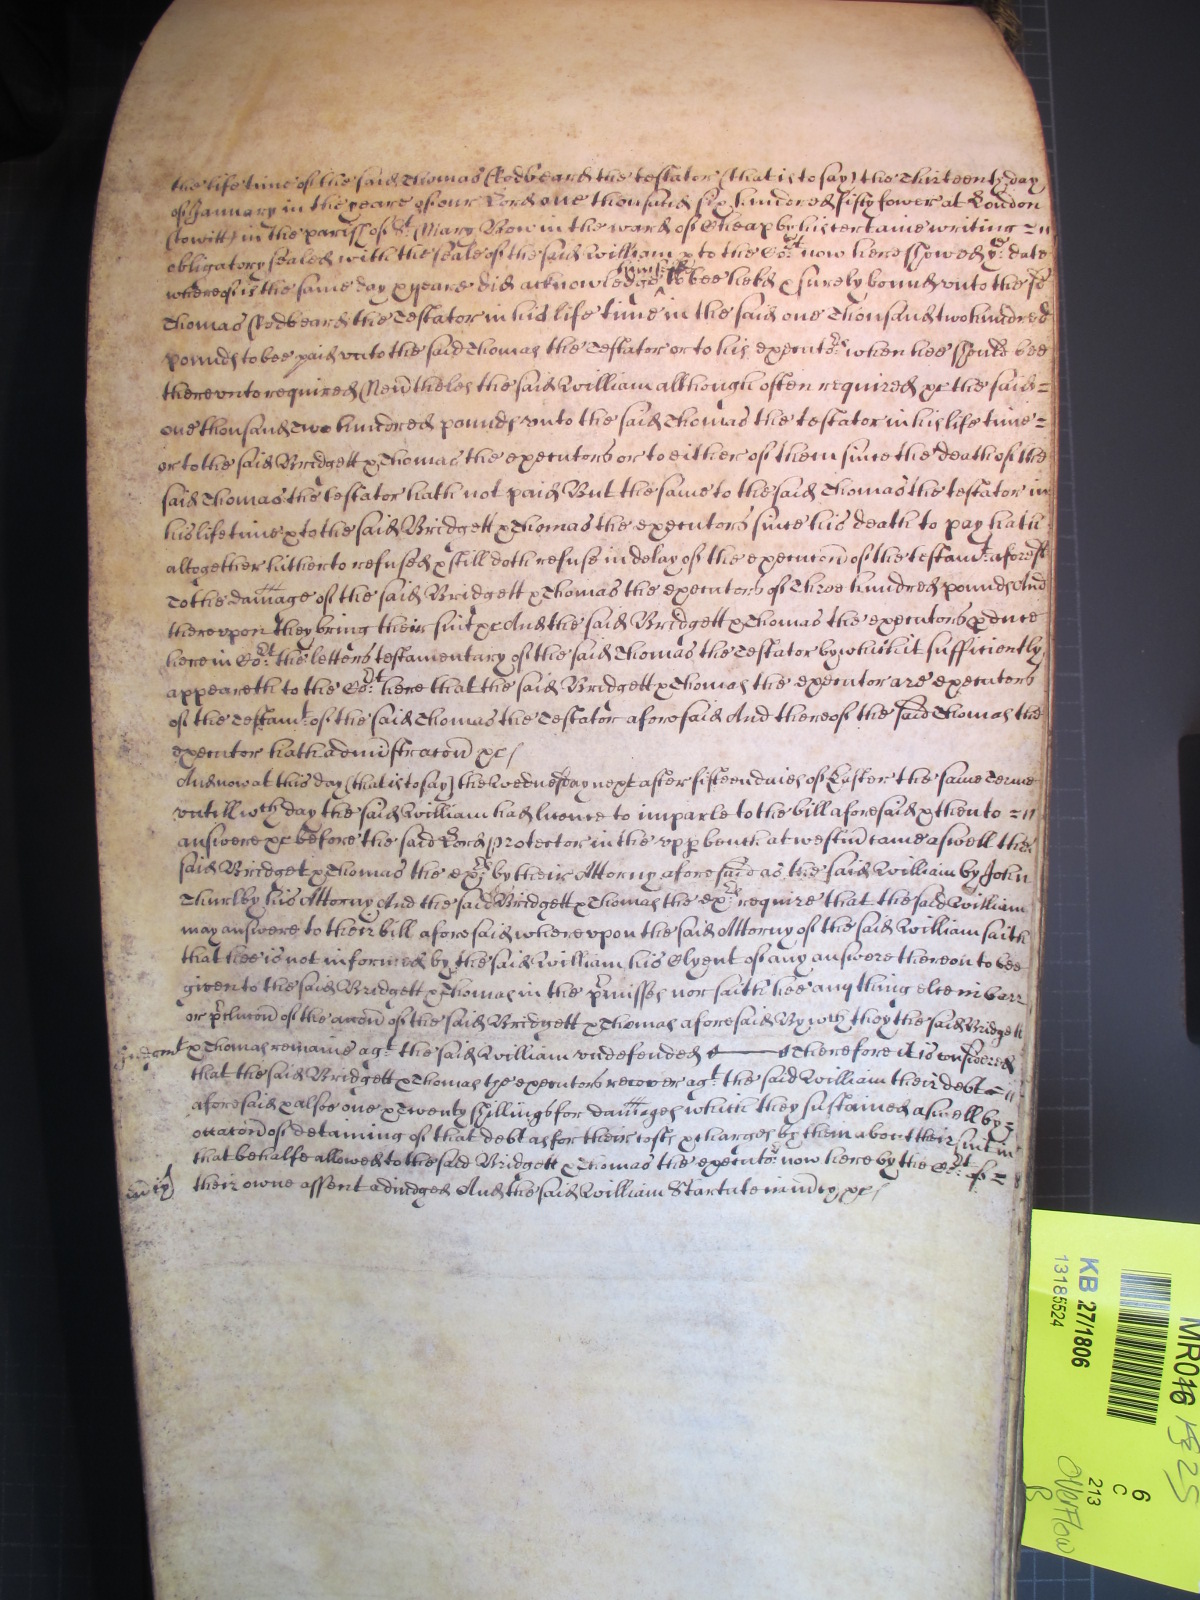 the life time of the said Thomas Rodbeard the testator (that is to say) the Thirteenth day
of January in the yeare of our Lord one thousand six hundred fifty fower at London
(to witt) in the parish of St Mary Bow in the ward of Cheap by his certaine writing =
obligatory sealed with the seale of the said William & to the Cort now here shewed ye date
whereof is the same day & yeare did acknowledge himselfe to bee held & surely bound unto the sd
Thomas Rodbeard the Testator in his life time in the said one Thousand two hundred
pounds to bee paid unto the said Thomas the Testator or to his executors when hee should bee
thereunto required Neverthelesse the said William although often required &c the said =
one thousand Two hundred pounds unto the said Thomas the testator in his life time =
or to the said Bridgett & Thomas the executors or to either of them since the death of the
said Thomas the testator hath not paid But the same to the said Thomas the testator in
his life time & to the said Bridgett & Thomas the executors since his death to pay hath
altogether hitherto refused & still doth refuse in delay of the execucon of the testamt aforesd
To the damage of the said Bridgett & Thomas the executors of Three hundred pounds And
thereupon they bring their suit &c And the said Bridgett & Thomas the executors pduce
here in Cort the letters testamentary of the said Thomas the Testator by which it sufficiently
appeareth to the Cort here that the said Bridgett & Thomas the executor are executors
of the Testamt of the said Thomas the Testator aforesaid And thereof the said Thomas the
executor hath administracon &c /
And now at this day (that is to say) the wednesday next after fifteen daies of Easter the same Terme
untill wch day the said William had licence to imparle to the bill aforesaid & then to =
answere &c before the said Lord Protector in the upp bench at westmr came aswell the
said Bridget & Thomas the exrs by their Attorny aforesaid as the said William by John
Thurlby his Attorny And the said Bridgett & Thomas the exrs require that the said William
may answere to their bill aforesaid whereupon the said Attorny of the said William saith
that hee is not informed by the said William his Clyent of any answere thereon to bee
given to the said Bridgett & Thomas in the prmisses nor saith hee any thing else in barr
or preclucon of the accon of the said Bridgett & Thomas aforesaid By wch they the said Bridgett
Judgmt
& Thomas remaine agt the said William undefended Therefore it is considered
that the said Bridgett & Thomas the executors recover agt the said William their debt =
aforesaid & alsoe one & Twenty shillings for damages which they sustained aswell by =
occacon of detaining of that debt as for their costs & charges by them about their suit in
that behalfe allowed to the said Bridgett & Thomas the executors now here by the Cort of =
mcy
their owne assent adiudged And the said William Startute in mcy &c /
KB 27/1806
13185524
MR016
6
C
213
Overflow
B